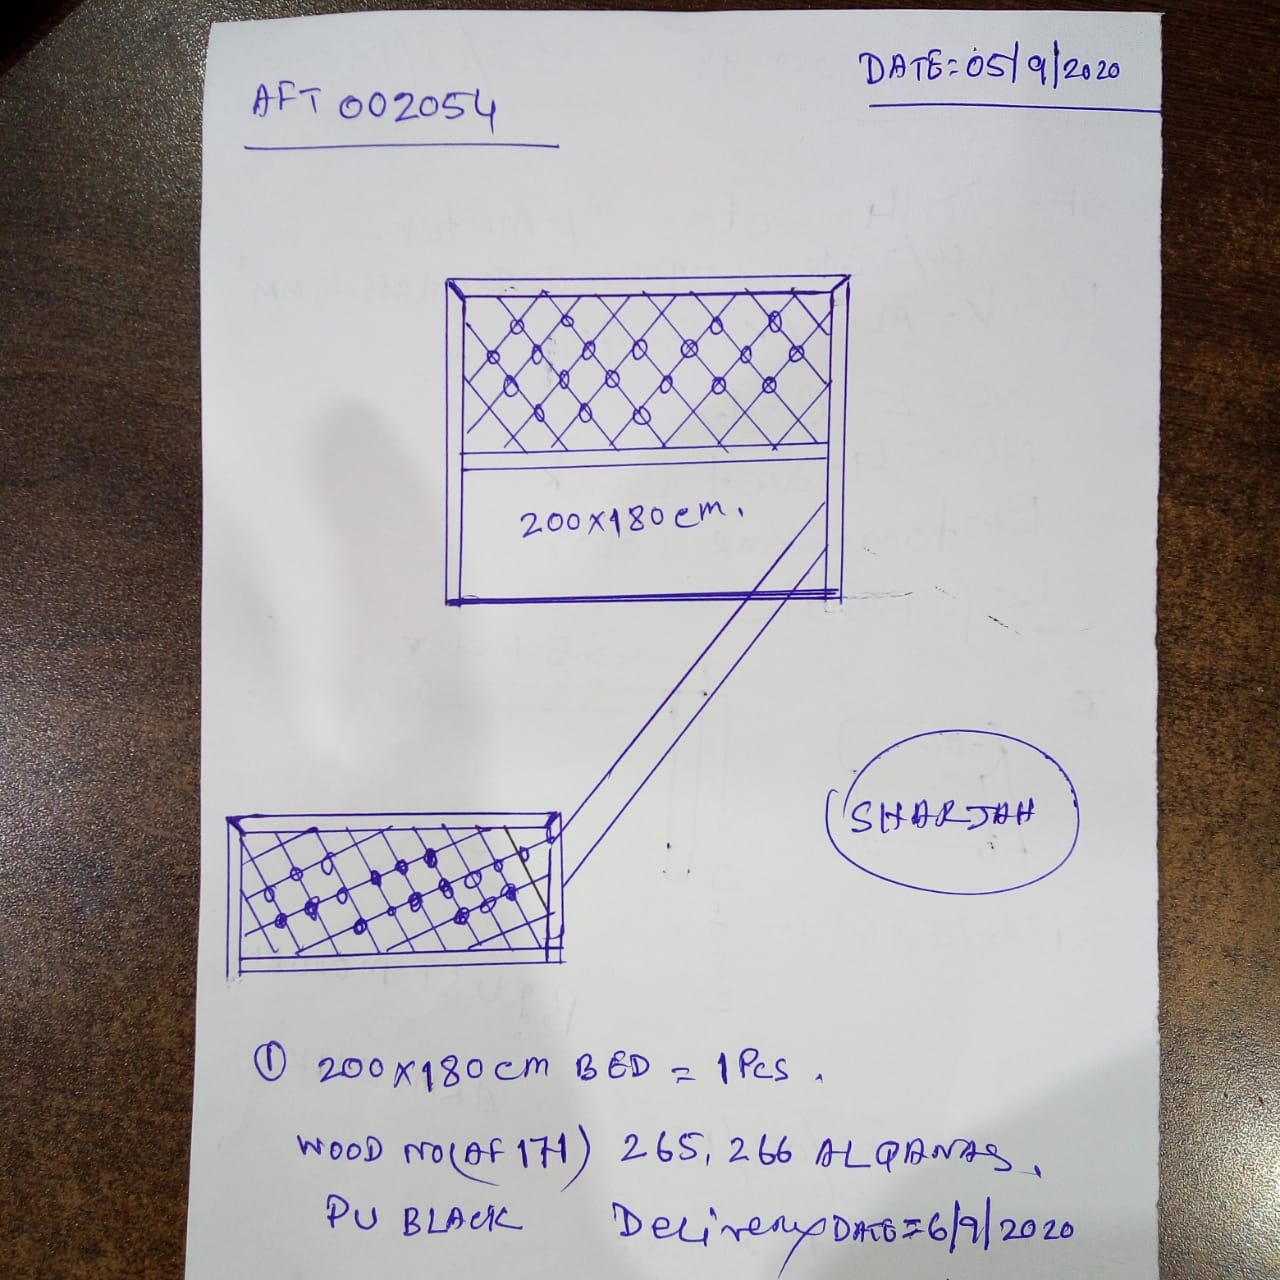 AFT 002054
DATE=05/9/2020
200x180cm.
SHARJAH
① 200x180cm BED = 1 Pcs.
WOOD NO(AF 171) 265, 266 ALQANAS,
PU BLACK Delivery DATE=6/9/2020